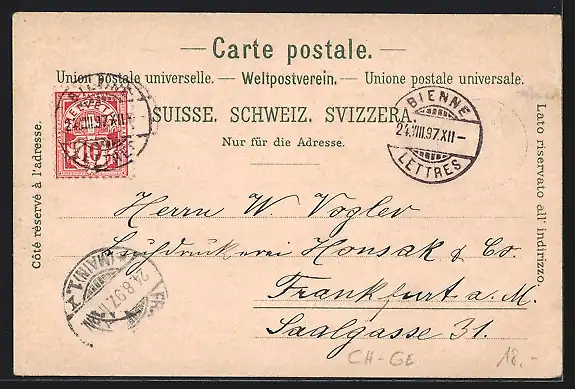 — Carte postale. —
Union postale universelle. — Weltpostverein. — Unione postale universale.
SUISSE. SCHWEIZ. SVIZZERA.
Nur für die Adresse.
Côté réservé à l'adresse.
Lato riservato all' indirizzo.
HELVETIA
10
24.VIII.97.XII
BIENNE
24.VIII.97.XII–
LETTRES
Herrn W. Vogler
Honsak & Co.
Frankfurt a. M.
Saalgasse 31.
(MAIN) 1.
24.8.97.
CH-GE
18.-